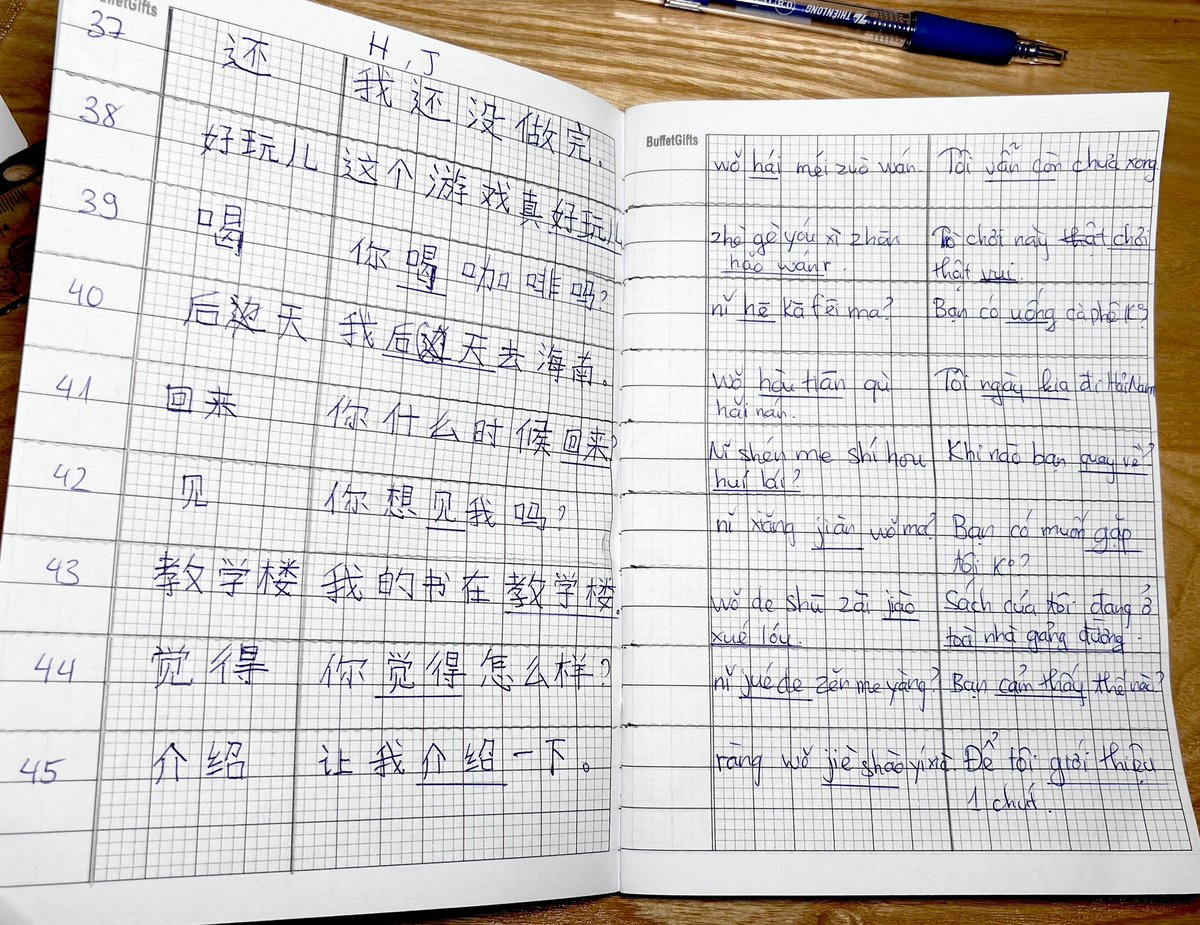 BuffetGifts
H, J
37 还 我还没做完.
38 好玩儿 这个游戏真好玩儿
39 喝 你喝咖啡吗?
40 后天 我后天去海南。
41 回来 你什么时候回来?
42 见 你想见我吗?
43 教学楼 我的书在教学楼.
44 觉得 你觉得怎么样?
45 介绍 让我介绍一下。
THIENLONG
BuffetGifts
wǒ hái méi zuò wán. Tôi vẫn còn chưa xong
zhè gè yóu xì zhēn Trò chơi này thật chơi
hǎo wánr. thật vui.
nǐ hē kā fēi ma? Bạn có uống cà phê K?
wǒ hòu tiān qù Tôi ngày kia đi Hải Nam
hǎi nán.
Nǐ shén me shí hou Khi nào bạn quay về?
huí lái?
nǐ xiǎng jiàn wǒ ma? Bạn có muốn gặp
tôi K?
wǒ de shū zài jiào Sách của tôi đang ở
xué lóu. toà nhà giảng đường.
nǐ jué de zěn me yàng? Bạn cảm thấy thế nào?
ràng wǒ jiè shào yí xià. Để tôi giới thiệu
1 chút.